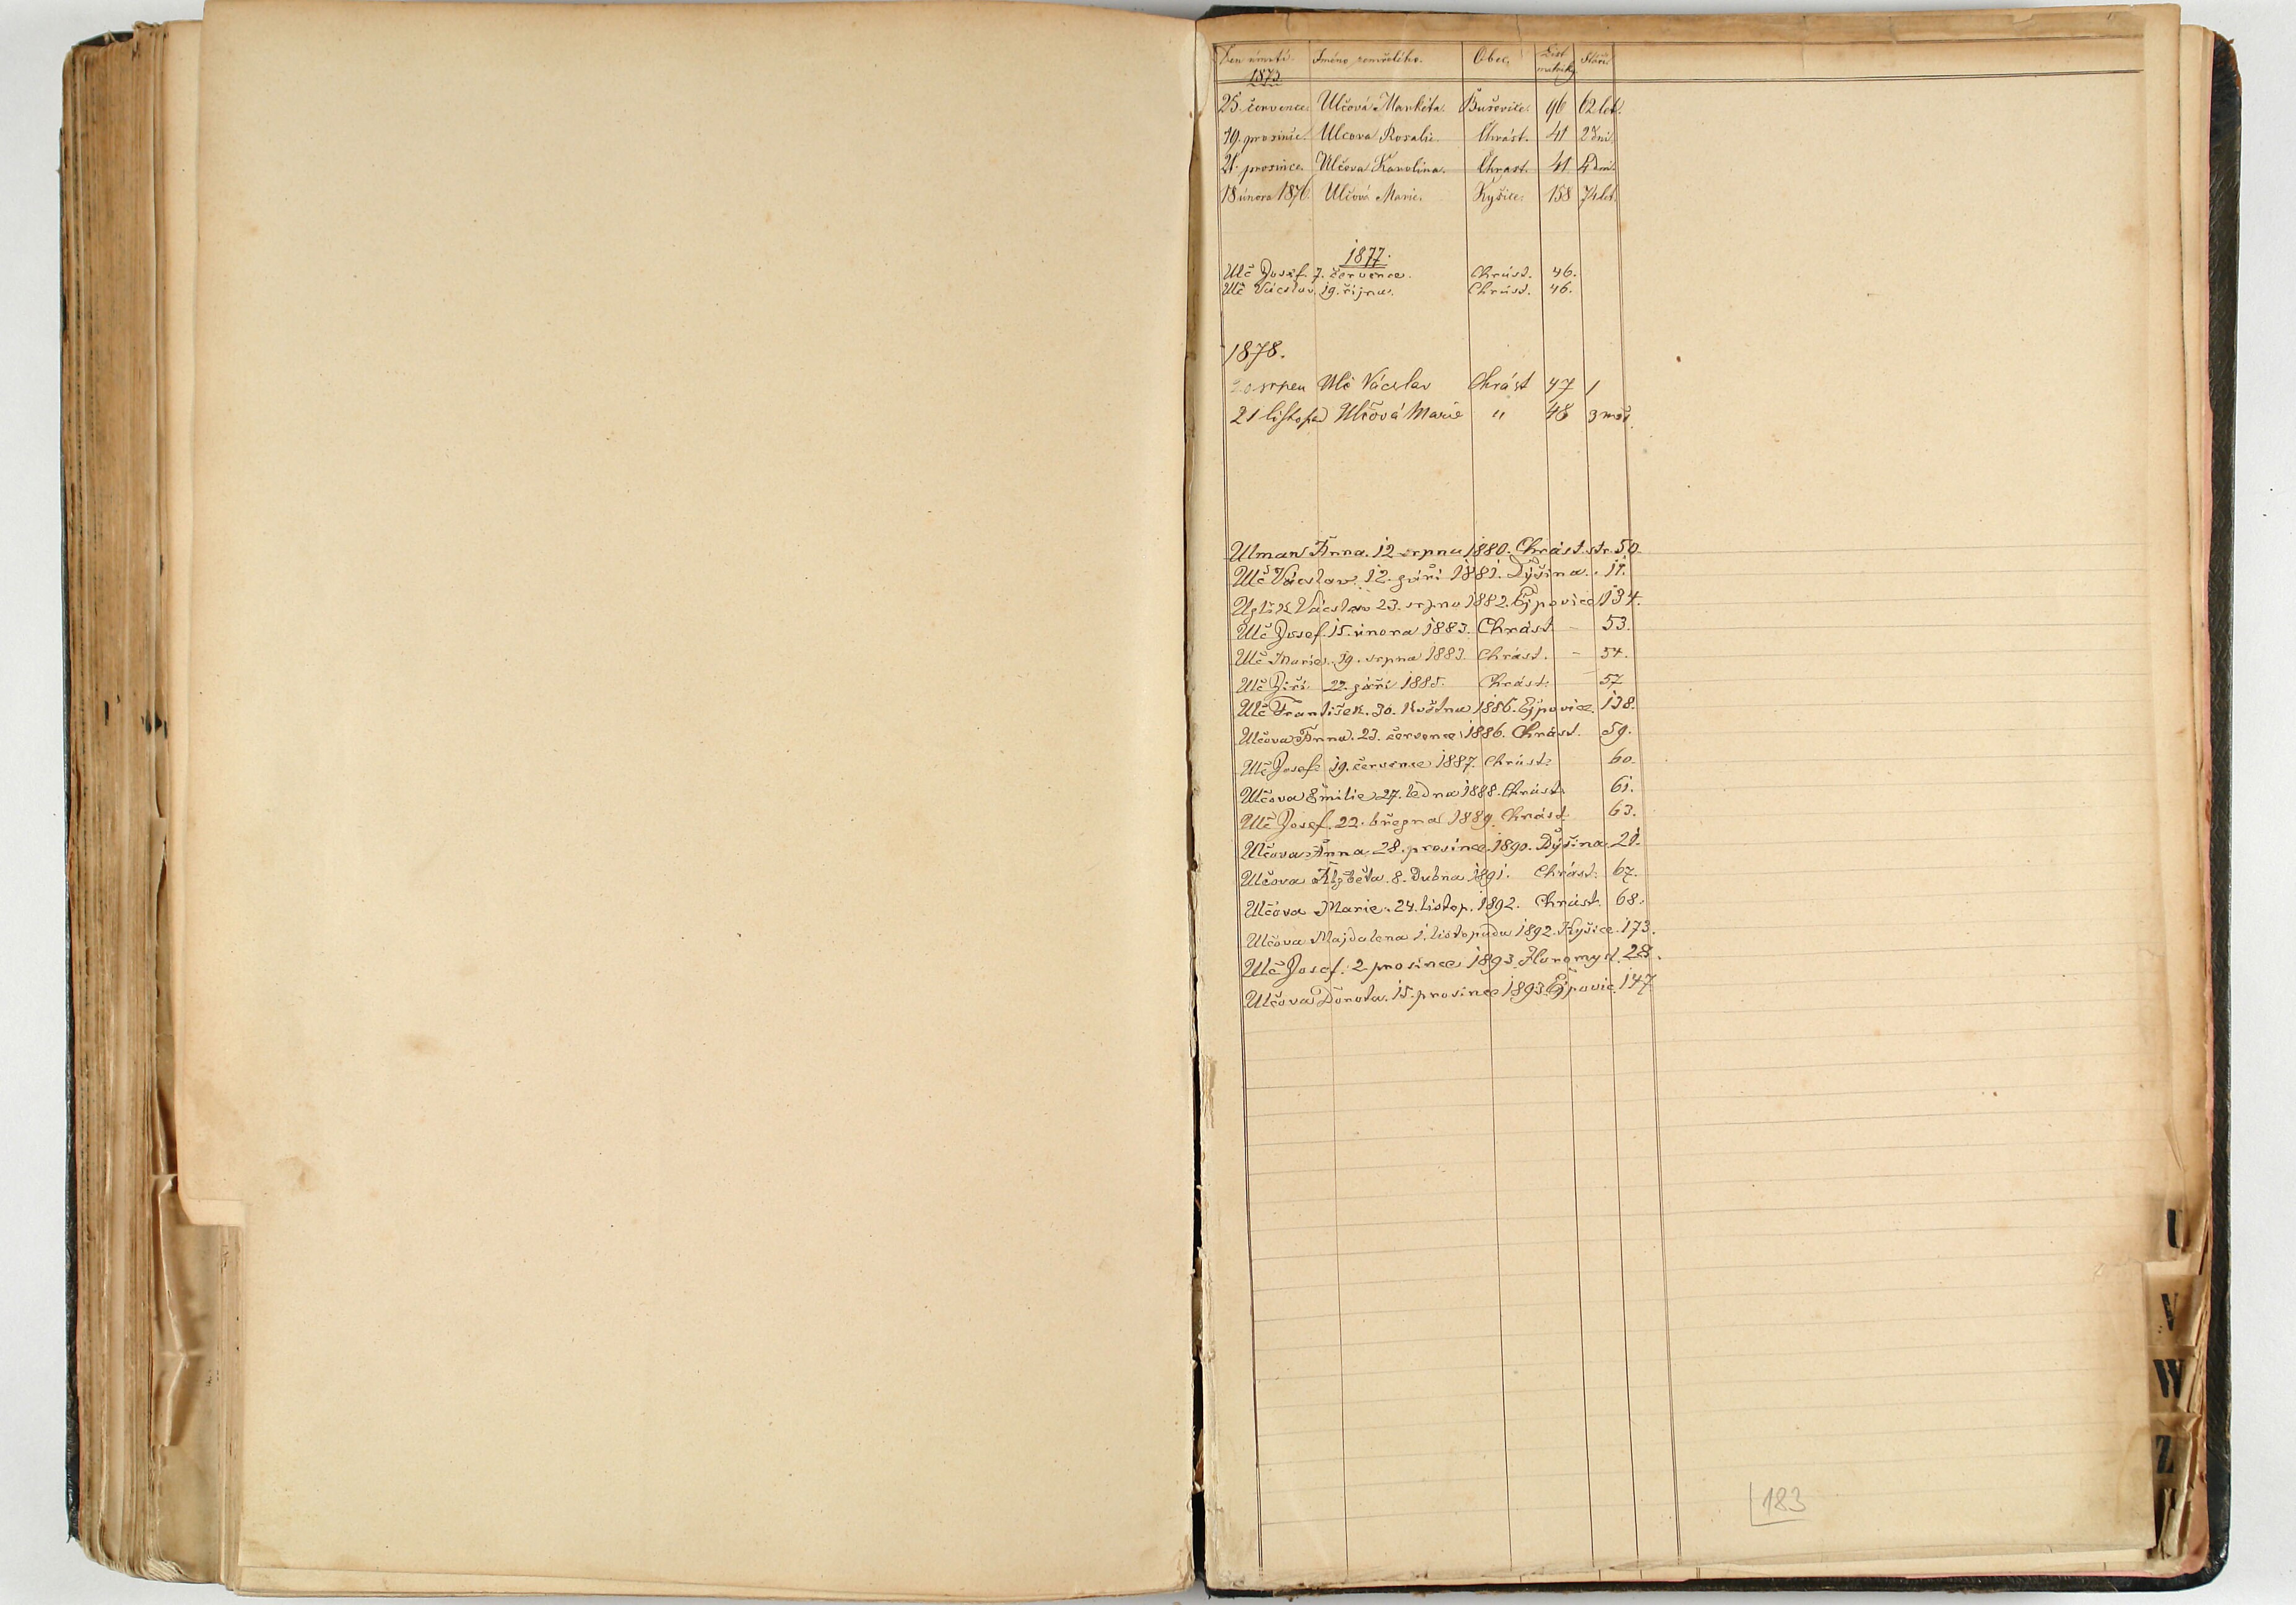 Den úmrtí. Jméno zemřelého. Obec. List matriky Stáří
1875.
25. července. Ulčová Markéta. Bušovice. 96 62 let.
19. prosince. Ulcova Rosalie. Chrást. 41 2 dní.
21. prosince. Ulčova Karolina. Chrast. 41 4 dni.
18 února 1876. Ulčová Marie. Kyšice. 158 74 let.
1877.
Ulč Josef. 7. července. Chrást. 46.
Ulč Václav. 19. října. Chrást. 46.
1878.
20 srpen Ulč Václav Chrást 47 1
21 listopad Ulčová Marie " 48 3 měs.
Ulman Anna. 12 srpnu 1880. Chrást. str. 50.
Ulč Václav. 12. září 1881. Dýšina. " 11.
Václav 23. srpna 1882. Ejpovice 134.
Ulč Josef. 15. února 1883. Chrást - 53.
Ulč Marie. 19. srpna 1883. Chrást. - 54.
Ulč Jiří. 22. září 1885. Chrást. 57
Ulč František. 30. května 1886. Ejpovice. 138.
Ulčova Anna. 23. července 1886. Chrást. 59.
Ulč Josef. 19. července 1887. Chrást. 60.
Ulčova Emilie 27. ledna 1888. Chrást. 61.
Ulč Josef. 22. března 1889. Chrást. 63.
Ulčova Anna. 28. prosince. 1890. Dýšina. 21.
Ulčova Alžběta. 8. Dubna 1891. Chrást. 67.
Ulčova Marie. 24. listop. 1892. Chrást. 68.
Ulčova Majdalena 1. listopadu 1892. Kyšice. 173.
Ulč Josef. 2 prosince 1893. Horomysl. 28.
Ulčova Dorota. 15. prosince 1893. Ejpovic. 147
183
U
V
W
Z